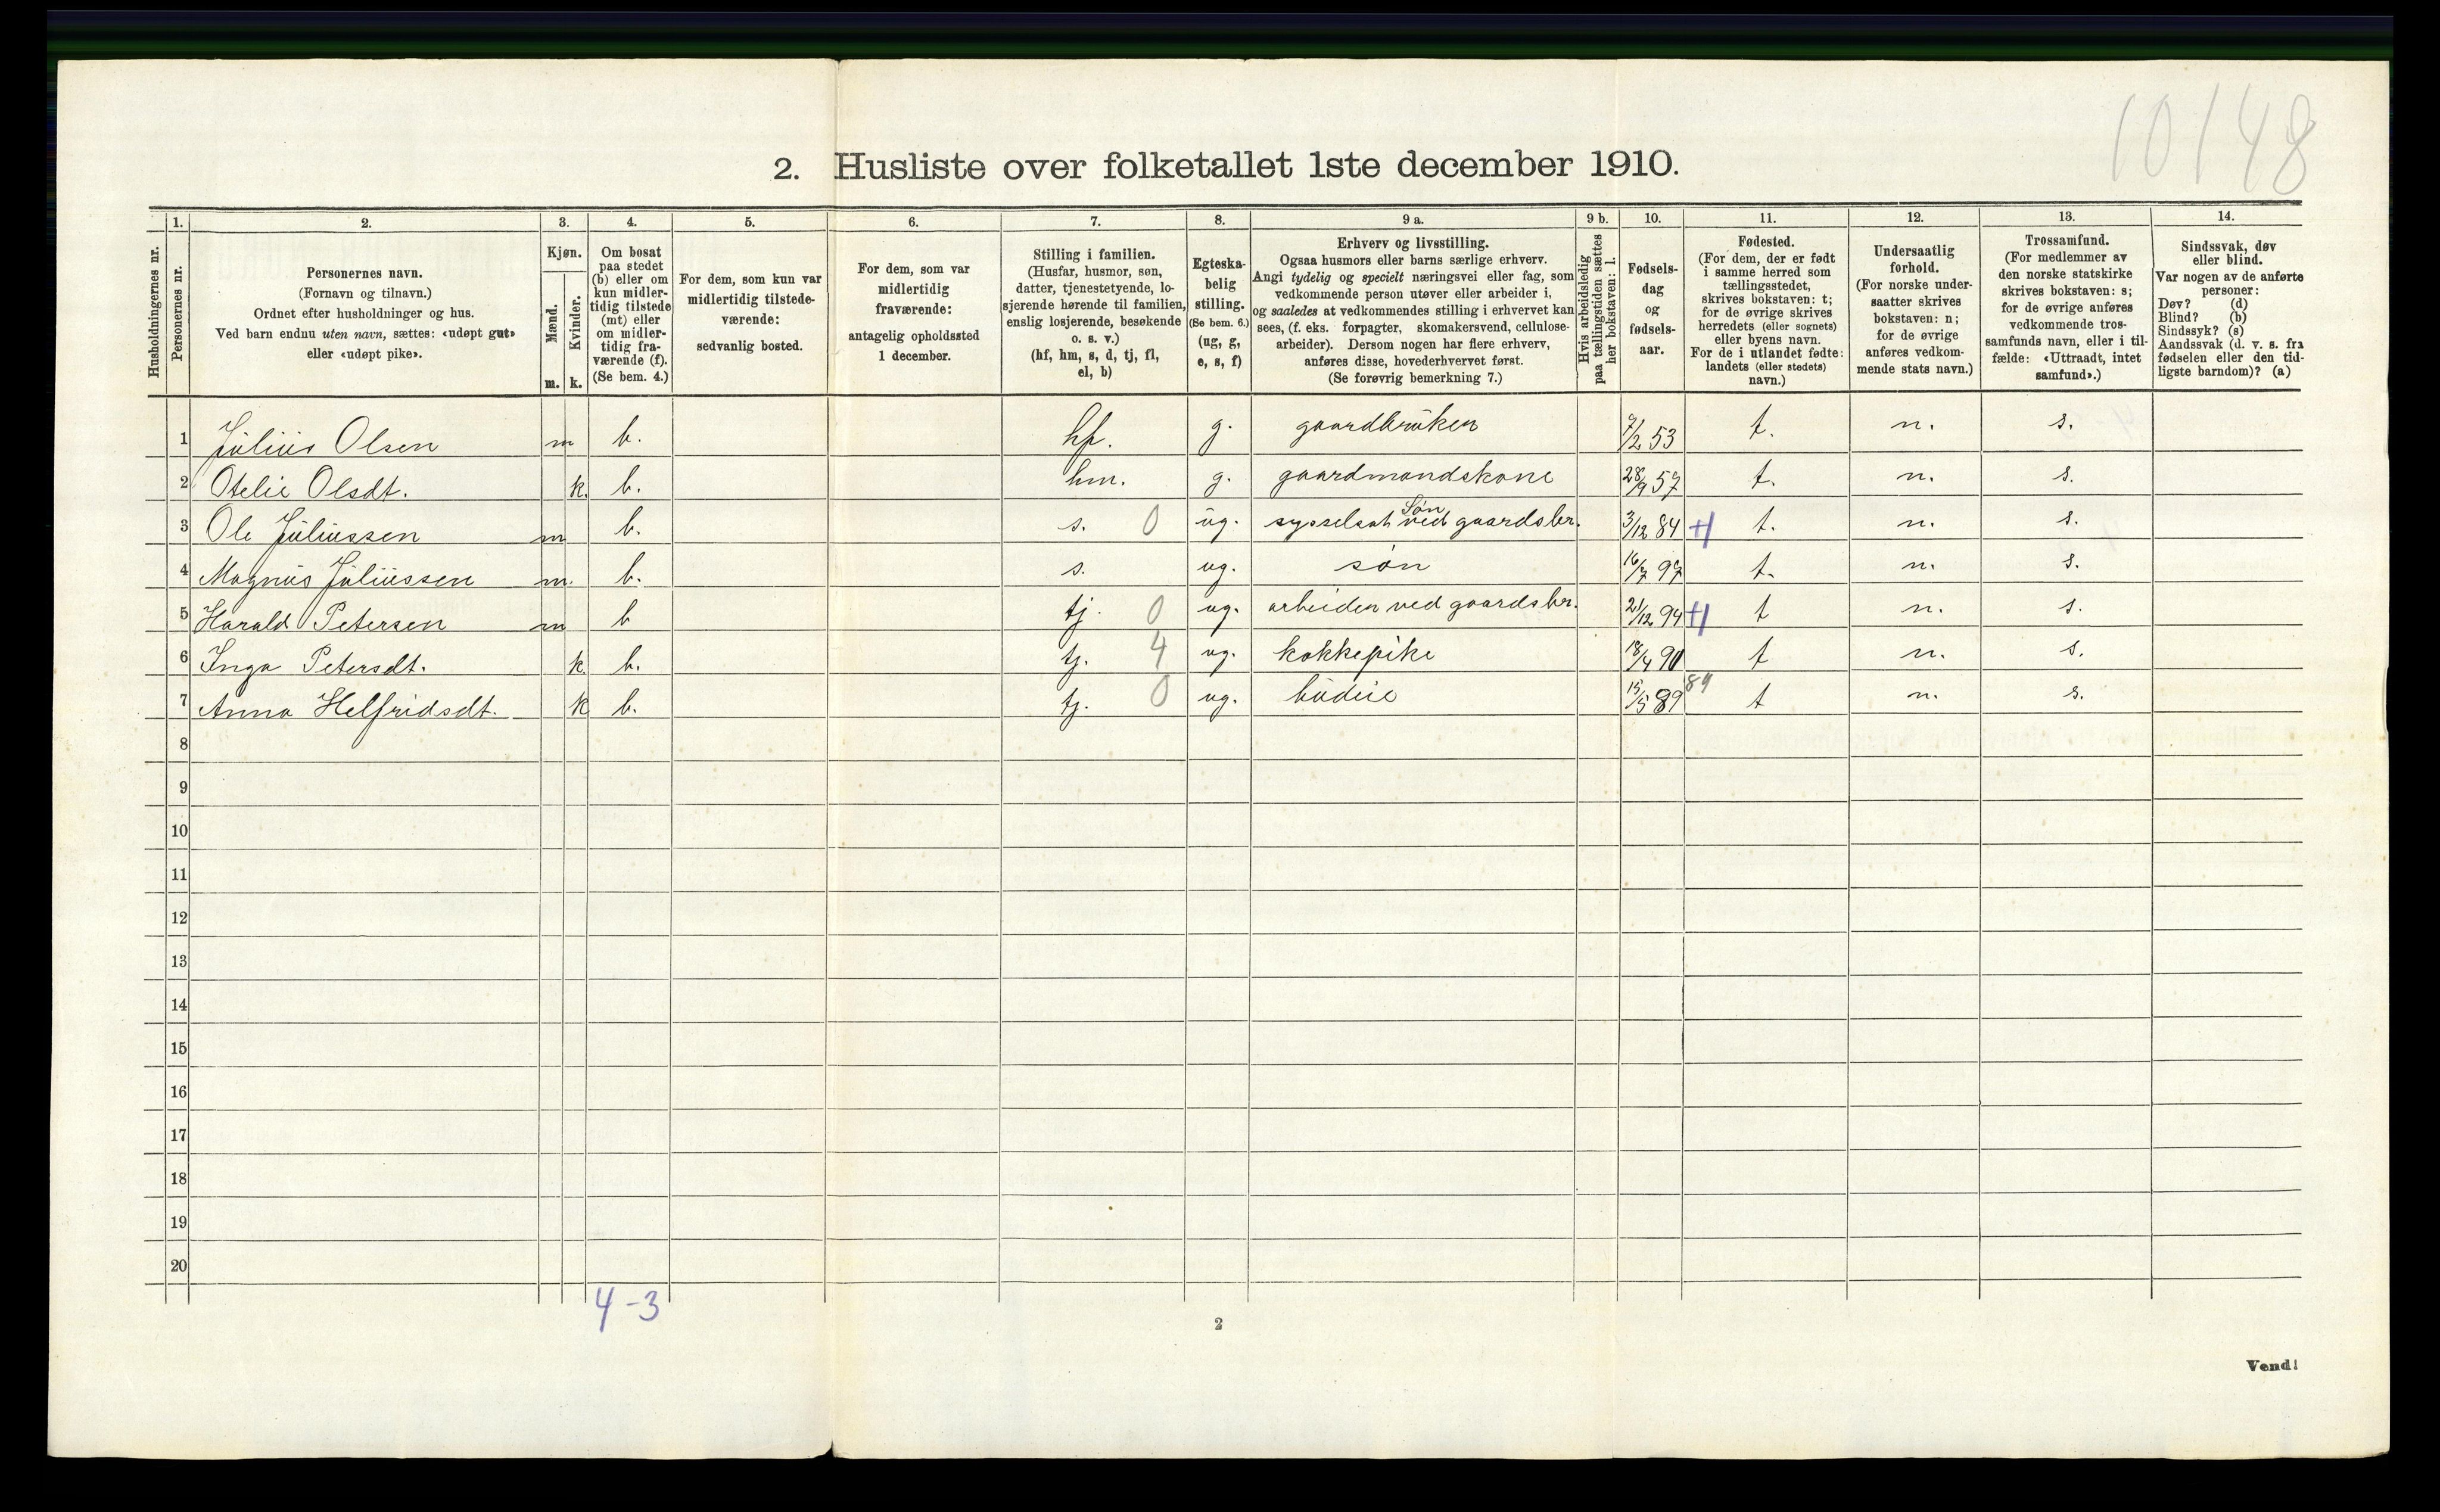 10148
2. Husliste over folketallet 1ste december 1910.
Husholdningernes nr.
1.
Personernes nr.
2.
Personernes navn.
(Fornavn og tilnavn.)
Ordnet efter husholdninger og hus.
Ved barn endnu uten navn, sættes: «udøpt gut»
eller «udøpt pike».
3.
Kjøn.
Mænd.
Kvinder.
m. k.
4.
Om bosat
paa stedet
(b) eller om
kun midler-
tidig tilstede
(mt) eller
om midler-
tidig fra-
værende (f).
(Se bem. 4.)
5.
For dem, som kun var
midlertidig tilstede-
værende:
sedvanlig bosted.
6.
For dem, som var
midlertidig
fraværende:
antagelig opholdssted
1 december.
7.
Stilling i familien.
(Husfar, husmor, søn,
datter, tjenestetyende, lo-
sjerende hørende til familien,
enslig losjerende, besøkende
o. s. v.)
(hf, hm, s, d, tj, fl,
el, b)
8.
Egteska-
belig
stilling.
(Se bem. 6.)
(ug, g,
e, s, f)
9 a.
Erhverv og livsstilling.
Ogsaa husmors eller barns særlige erhverv.
Angi tydelig og specielt næringsvei eller fag, som
vedkommende person utøver eller arbeider i,
og saaledes at vedkommendes stilling i erhvervet kan
sees, (f. eks. forpagter, skomakersvend, cellulose-
arbeider). Dersom nogen har flere erhverv,
anføres disse, hovederhvervet først.
(Se forøvrig bemerkning 7.)
9 b.
Hvis arbeidsledig
paa tællingstiden sættes
her bokstaven: l.
10.
Fødsels-
dag
og
fødsels-
aar.
11.
Fødested.
(For dem, der er født
i samme herred som
tællingsstedet,
skrives bokstaven: t;
for de øvrige skrives
herredets (eller sognets)
eller byens navn.
For de i utlandet fødte:
landets (eller stedets)
navn.)
12.
Undersaatlig
forhold.
(For norske under-
saatter skrives
bokstaven: n;
for de øvrige
anføres vedkom-
mende stats navn.)
13.
Trossamfund.
(For medlemmer av
den norske statskirke
skrives bokstaven: s;
for de øvrige anføres
vedkommende tros-
samfunds navn, eller i til-
fælde: «Uttraadt, intet
samfund».)
14.
Sindssvak, døv
eller blind.
Var nogen av de anførte
personer:
Døv? (d)
Blind? (b)
Sindssyk? (s)
Aandssvak (d. v. s. fra
fødselen eller den tid-
ligste barndom)? (a)
1 Julius Olsen m b. hf. g. gaardbruker 7/2 53 t. n. s.
2 Otelie Olsdt. k. b. hm. g. gaardmandskone 28/9 57 t. n. s.
3 Ole Juliussen m b. s. 0 ug. sysselsat Søn ved gaardsbr. 3/12 84 t. n. s.
4 Magnus Juliussen m. b. s. ug. søn 16/7 97 t. n. s.
5 Harald Petersen m b tj. 0 ug. arbeider ved gaardsbr. 21/12 94 t n. s.
6 Inga Petersdt. k. b. tj. 4 ug. kokkepike 18/4 90 t n. s.
7 Anna Helfridsdt. k b. tj. 0 ug. budeie 15/5 89 89 t n. s.
8
9
10
11
12
13
14
15
16
17
18
19
20
4-3
2
Vend!